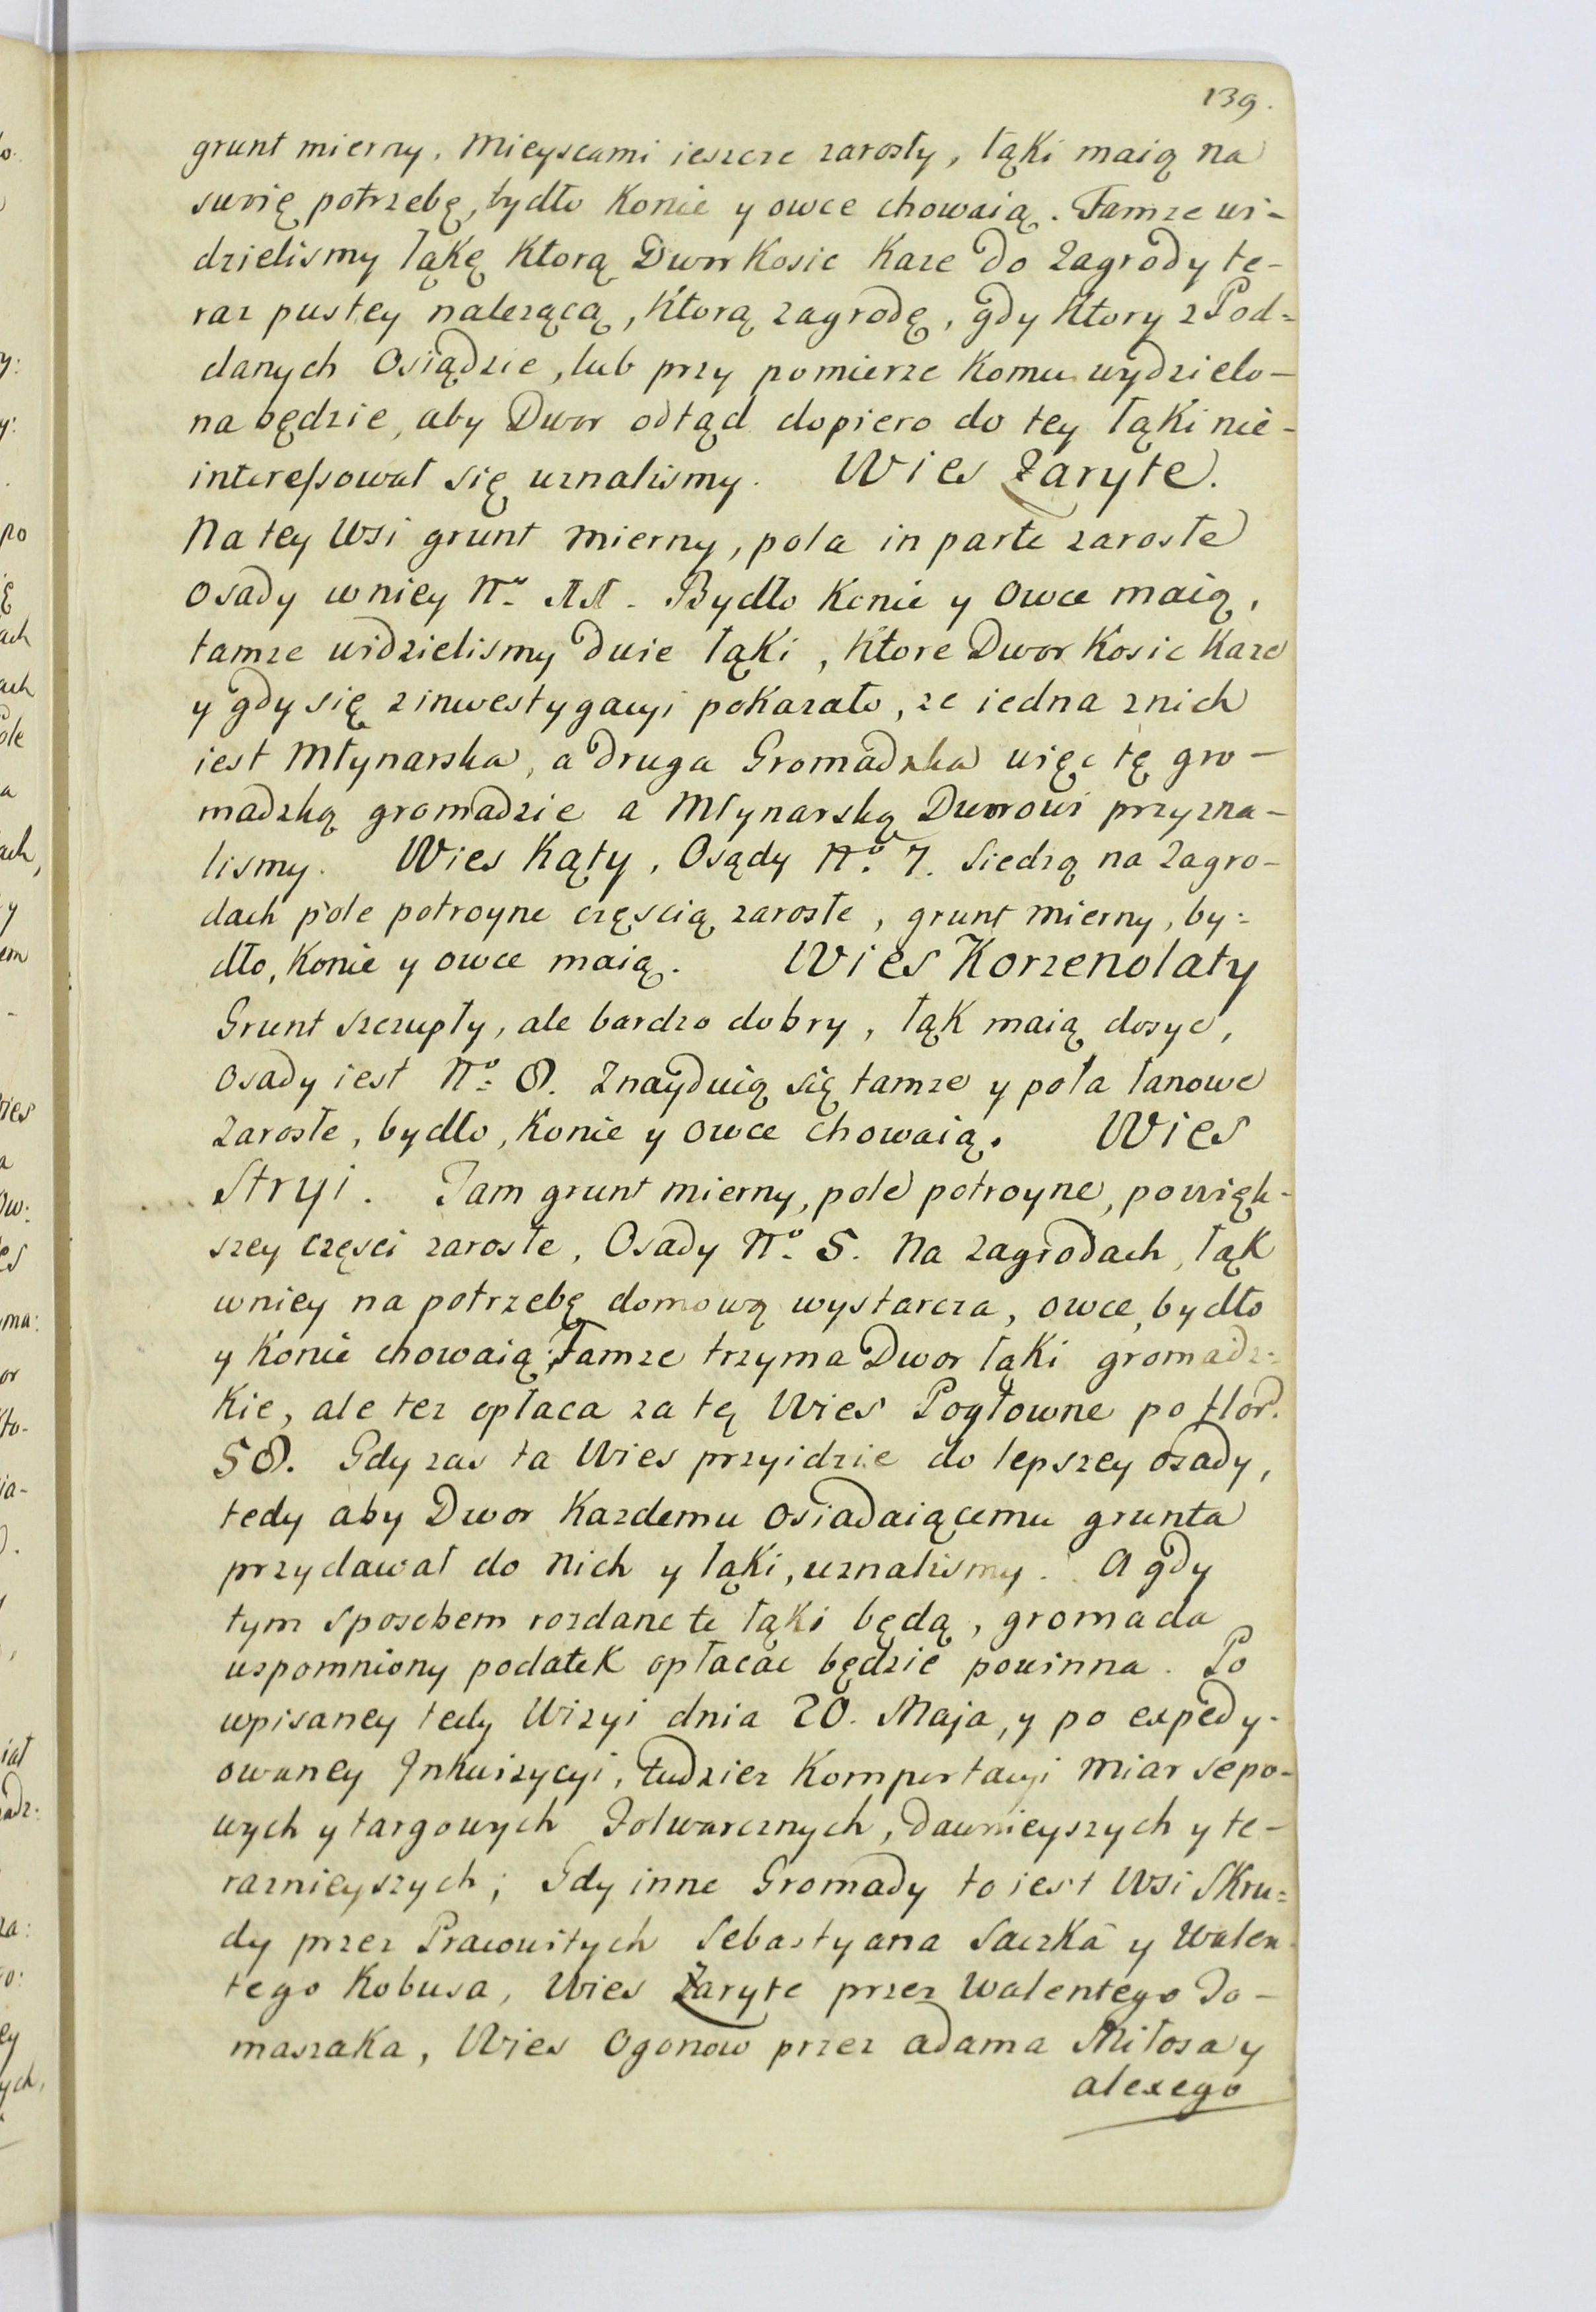 139.
grunt mierny, Mieyscami ieszcze zarosły, łąki maią na
swoię potrzebę, bydło Konie y owce chowaią. Tamze wi-
dzielismy łąkę Ktorą Dwor Kosic Kaze do Zagrody te-
raz pustey nalezącą, Ktorą zagrodę, gdy Ktory z Pod=
danych Osiądzie, lub przy pomierze Komu wydzielo-
na będzie, aby Dwor odtąd dopiero do tey łąki nie-
interessował się uznalismy. Wies Zaryte.
Na tey Wsi grunt mierny, pola in parte zarosłe
Osady w niey N.o 11. Bydło Konie y Owce maią,
tamze widzielismy dwie łąki, Ktore Dwor Kosic Kaze
y gdy się z inwestygacyi pokazało, ze iedna z nich
iest Młynarska, a druga Gromadzka więc tę gro-
madzką gromadzie a Młynarską Dworowi przyzna-
lismy. Wies Kąty, Osądy N.o 7. Siedzą na Zagro-
dach pole potroyne częscią zarosłe, grunt mierny, by=
dło, Konie y owce maią. Wies Korzenolaty
Grunt szczupły, ale bardzo dobry, łąk maią dosyc,
Osady iest N.o 8. Znayduią się tamze y pola łanowe
Zarosłe, bydło, Konie y owce chowaią. Wies
Stryi. Tam grunt mierny, pole potroyne, powięk-
szey częsci zarosłe, Osady N.o 5. Na Zagrodach, łąk
w niey na potrzebę domową wystarcza, owce, bydło
y Konie chowaią, Tamze trzyma Dwor łąki gromadz=
Kie, ale tez opłaca za tę Wies Pogłowne po flor.
58. Gdy zas ta Wies przyidzie do lepszey osady,
tedy aby Dwor Kazdemu Osiadaiącemu grunta
przydawał do Nich y łąki, uznalismy. A gdy
tym sposobem rozdane te łąki będą, gromada
wspomniony podatek opłacac będzie powinna. Po
wpisaney tedy Wizyi dnia 20. Maja, y po expedy-
owaney Inkwizycyi, tudziez Komportacyi Miar sepo-
wych y targowych Folwarcznych, dawnieyszych y te-
raznieyszych; Gdy inne Gromady to iest Wsi Skru=
dy przez Pracowitych Sebastyana Saczka y Walen-
tego Kobusa, Wies Zaryte przez Walentego To-
maszaka, Wies Ogonow przez adama Miłosa y
alexego